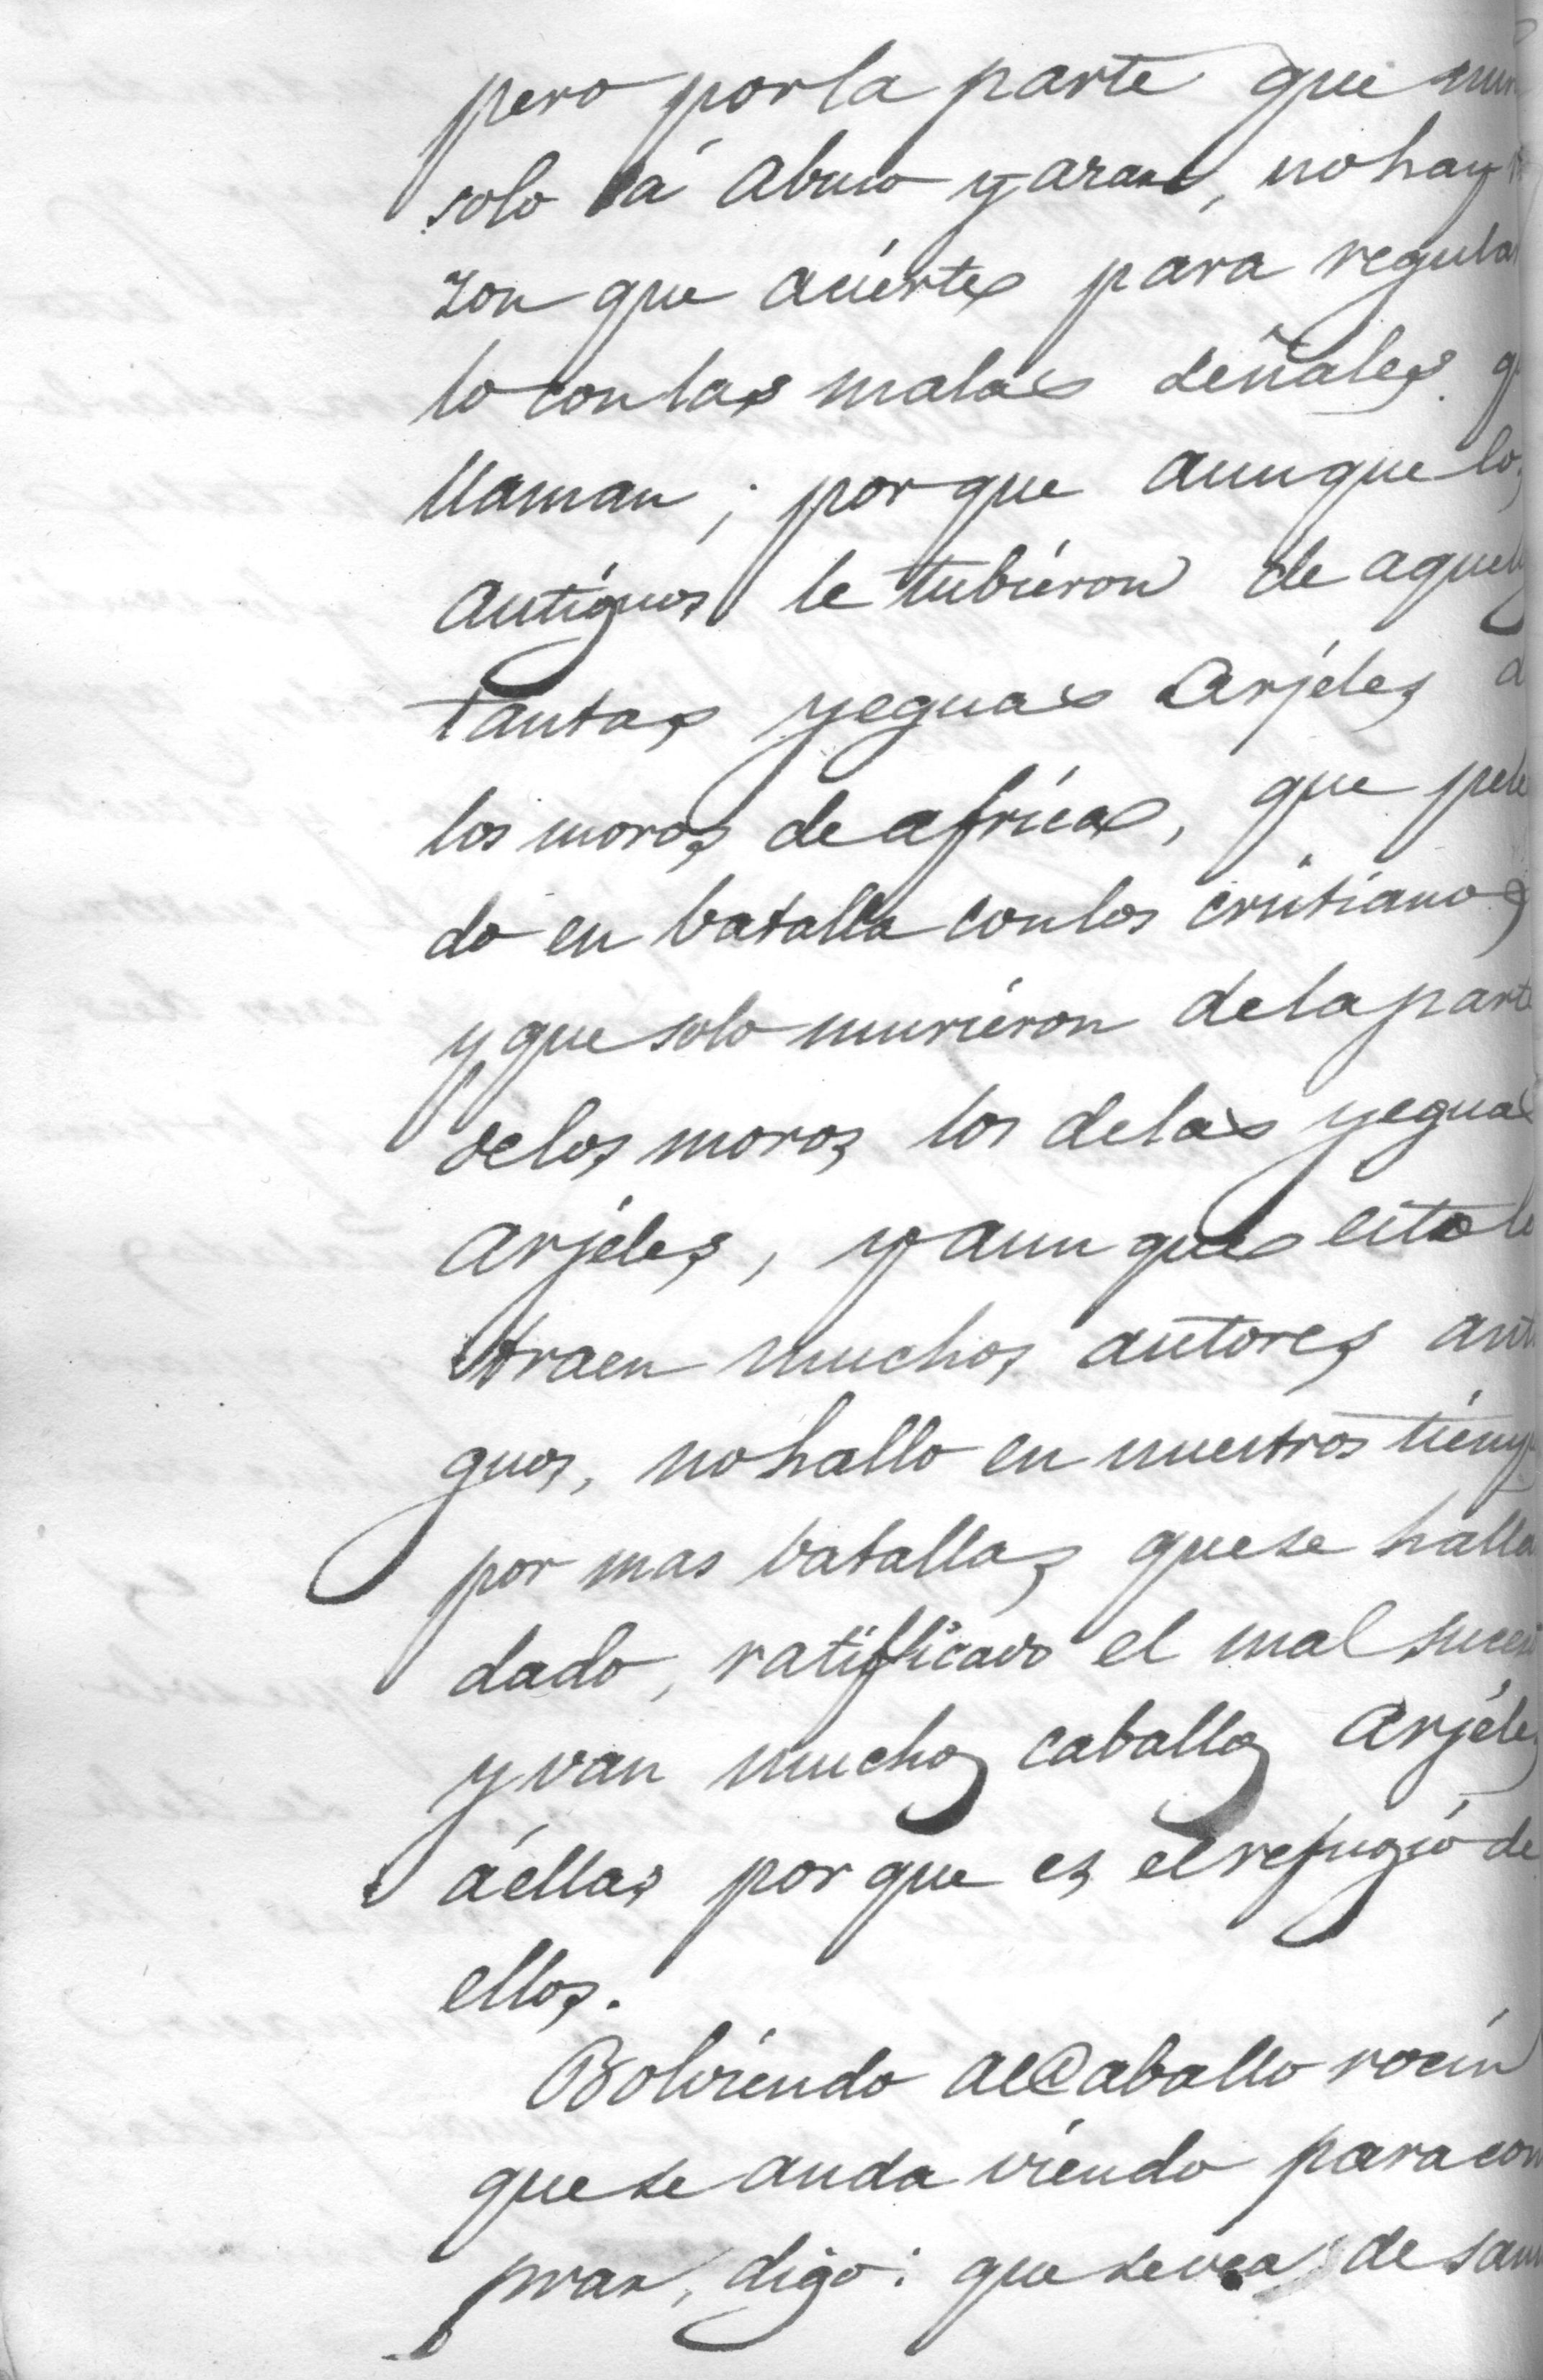 pero por la parte que
solo á Abuso y arase, no hay
zon que aciérte para regular
lo con las malas señales. q
llaman; por que aunque los
antíguos le tubiéron de aquel
tantas yeguas Arjéles d
los moros de africa, que pele
do en batalla con los cristianos
y que solo muriéron de la parte
de los moros los de las yeguas
arjéles, y aun que esto lo
traen muchos autores anti
guos, no hallo en nuestros tiémp
por mas batallas que se halla
dado, ratifficado el mal suceso
y van muchos caballos Arjéles
á éllas por que es el refugió de
ellos.
Bolviéndo al Caballo rocín
que se anda viéndo para com
prar, digo: que se vea de san